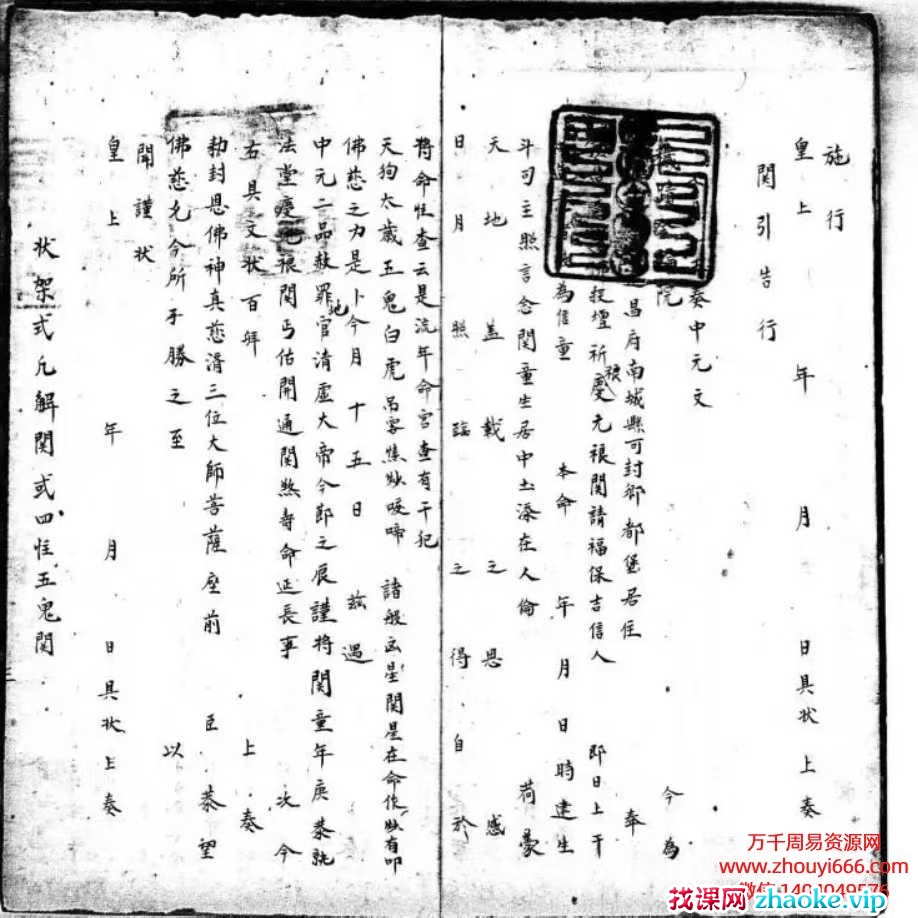 施行
皇上 年 月 日具状上奏
関引告行
奏中元文
院 今為
昌府南城縣可封鄉 都堡居住 奉
投壇祈慶元禳関請福保吉信人 即日上干
為信童 本命 年 月 日時建生
斗司主照言念関童生居中土添在人倫 荷蒙
天地盖載之恩 感
日月照臨之得自於
将命性查云是流年命宮查有干犯
天狗太歲五鬼白虎吊客 啼 諸般凶星関星在命作 有叩
佛慈之力是卜今月十五日 兹遇
中元二品赦罪地官清虚大帝今節之辰謹将関童年庚恭就
法堂 禳関丐佑開通関煞寿命延長事 次今
右具文状百拜 上奏
勅封恩佛神真慈濟三位大師菩薩座前 臣恭望
佛慈允令所于勝之至 以
聞謹状
皇上 年 月 日具状上奏
状架式凡解関或四性五鬼関
万千周易资源网
www.zhouyi666.com
找课网 zhaoke.vip